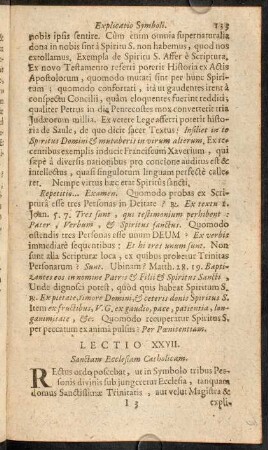 Explicatio Symboli. 133
nobis ipsis sentire. Cùm enim omnia supernaturalia
dona in nobis sint à Spiritu S. non habemus, quod nos
extollamus. Exempla de Spiritu S. Affer è Scriptura.
Ex novo Testamento referri poterit Historia ex Actis
Apostolorum, quomodo mutati sint per hunc Spiri-
tum; quomodo confortati, ità ut gaudentes irent à
conspectu Concilij, quàm eloquentes fuerint redditi,
qualiter Petrus in die Pentecostes mox converterit tria
Judæorum millia. Ex vetere Lege afferri poterit histo-
ria de Saule, de quo dicit sacer Textus: Insiliet in te
Spiritus Domini & mutaberis in virum alterum. Ex re-
centioribus exemplis inducit Franciscum Xaverium, qui
sæpè à diversis nationibus pro concione auditus est &
intellectus, quasi singulorum linguam perfectè calle-
ret. Nempe virtus hæc erat Spiritus sancti.
Repetitio. Examen. Quomodo probas ex Scri-
pturâ esse tres Personas in Deitate? R. Ex textu 1.
Joan. 5. 7. Tres sunt, qui testimonium perhibent:
Pater, Verbum, & Spiritus sanctus. Quomodo
ostendis tres Personas esse unum DEUM? Ex verbis
immediatè sequentibus: Et hi tres unum sunt. Non
sunt alia Scripturæ loca, ex quibus probetur Trinitas
Personarum? Sunt. Ubinam? Matth. 28. 19. Bapti-
zantes eos in nomine Patris & Filii & Spiritus Sancti,
Unde dignosci potest, quòd quis habeat Spiritum S.
R. Ex pietate, timore Domini, & ceteris donis Spiritus S.
Item ex fructibus, V. G. ex gaudio, pace, patientia, lon-
ganimitate, &c. Quomodo recuperatur Spiritus S.
per peccatum ex anima pulsus? Per Pœnitentiam.
LECTIO XXVII.
Sanctam Ecclesiam Catholicam.
REctus ordo poscebat, ut in Symbolo tribus Per-
sonis divinis sub jungeretur Ecclesia, tanquam
domus Sanctissimæ Trinitatis, aut velut Magistra &
I 3 expli-